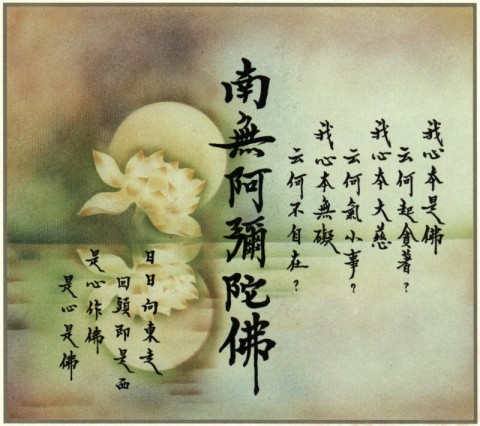 我心本是佛
云何起貪著？
我心本大慈
云何氣小事？
我心本無礙
云何不自在？
南無阿彌陀佛
日日向東走
回頭即是西
是心作佛
是心是佛